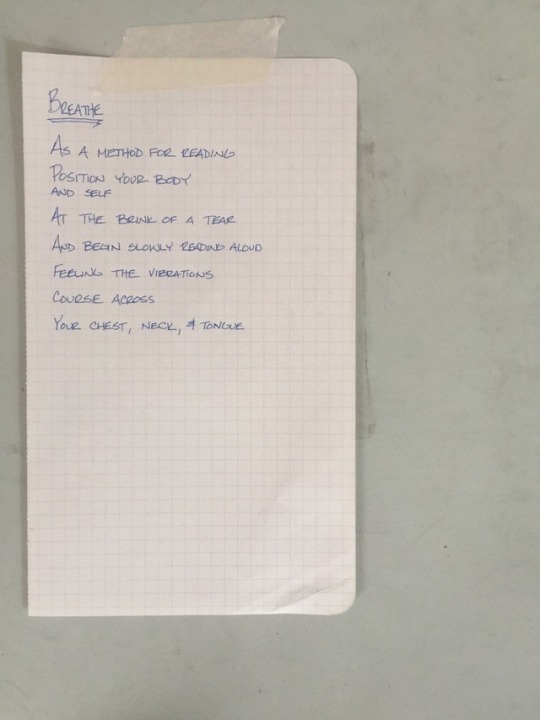 BREATHE
AS A METHOD FOR READING
POSITION YOUR BODY
AND SELF
AT THE BRINK OF A TEAR
AND BEGIN SLOWLY READING ALOUD
FEELING THE VIBRATIONS
COURSE ACROSS
YOUR CHEST, NECK, & TONGUE